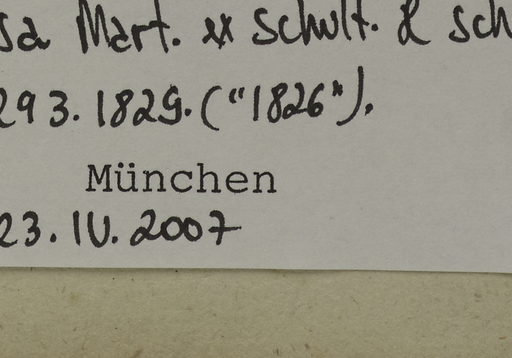 sa Mart. ex Schult. & Sch
293. 1829. ("1826").
München
23. IV. 2007